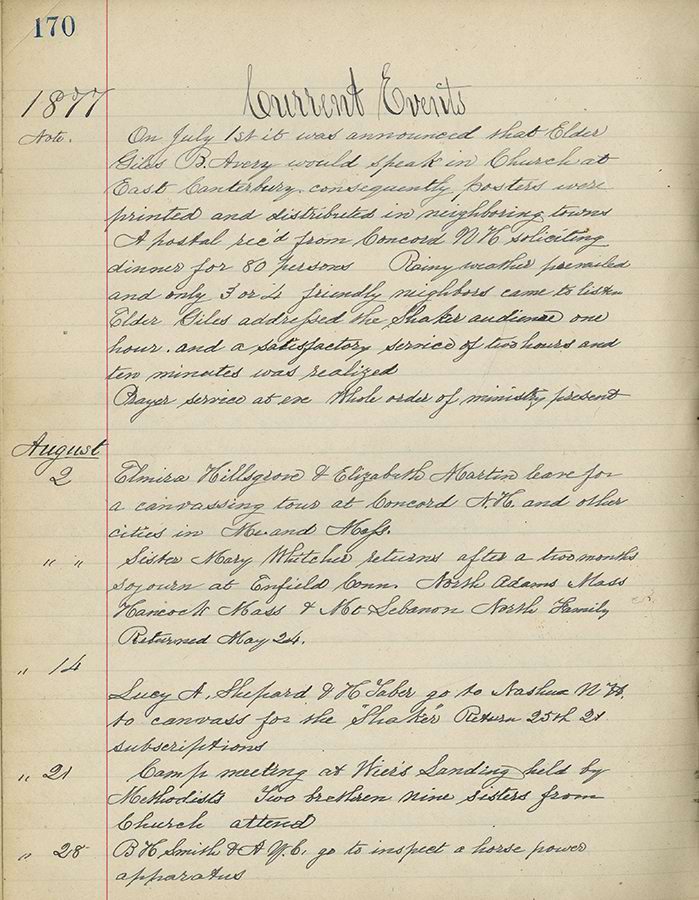 170
1877 Current Events
Note. On July 1st it was announced that Elder
Giles B. Avery would speak in Church at
East Canterbury. consequently posters were
printed and distributed in neighboring towns
A postal rec'd from Concord N H soliciting
dinner for 80 persons Rainy weather prevailed
and only 3 or 4 friendly neighbors came to listen
Elder Giles addressed the Shaker audience one
hour. and a satisfactory service of two hours and
ten minutes was realized
Prayer service at eve Whole order of ministry present
August
2 Elmira Hillsgrove & Elizabeth Martin leave for
a canvassing tour at Concord N.H. and other
cities in Me. and Mass.
" " Sister Mary Whitcher returns after a two months
sojourn at Enfield Conn. North Adams Mass
Hancock Mass & Mt Lebanon North Family
Returned May 24.
" 14
Lucy A. Shepard & H Taber go to Nashua N H.
to canvass for the "Shaker" Return 25th 21
subscriptions
" 21 Camp meeting at Wier's Landing held by
Methodists Two brethren nine sisters from
Church attend
" 28 B H Smith & A Y. C. go to inspect a horse power
apparatus